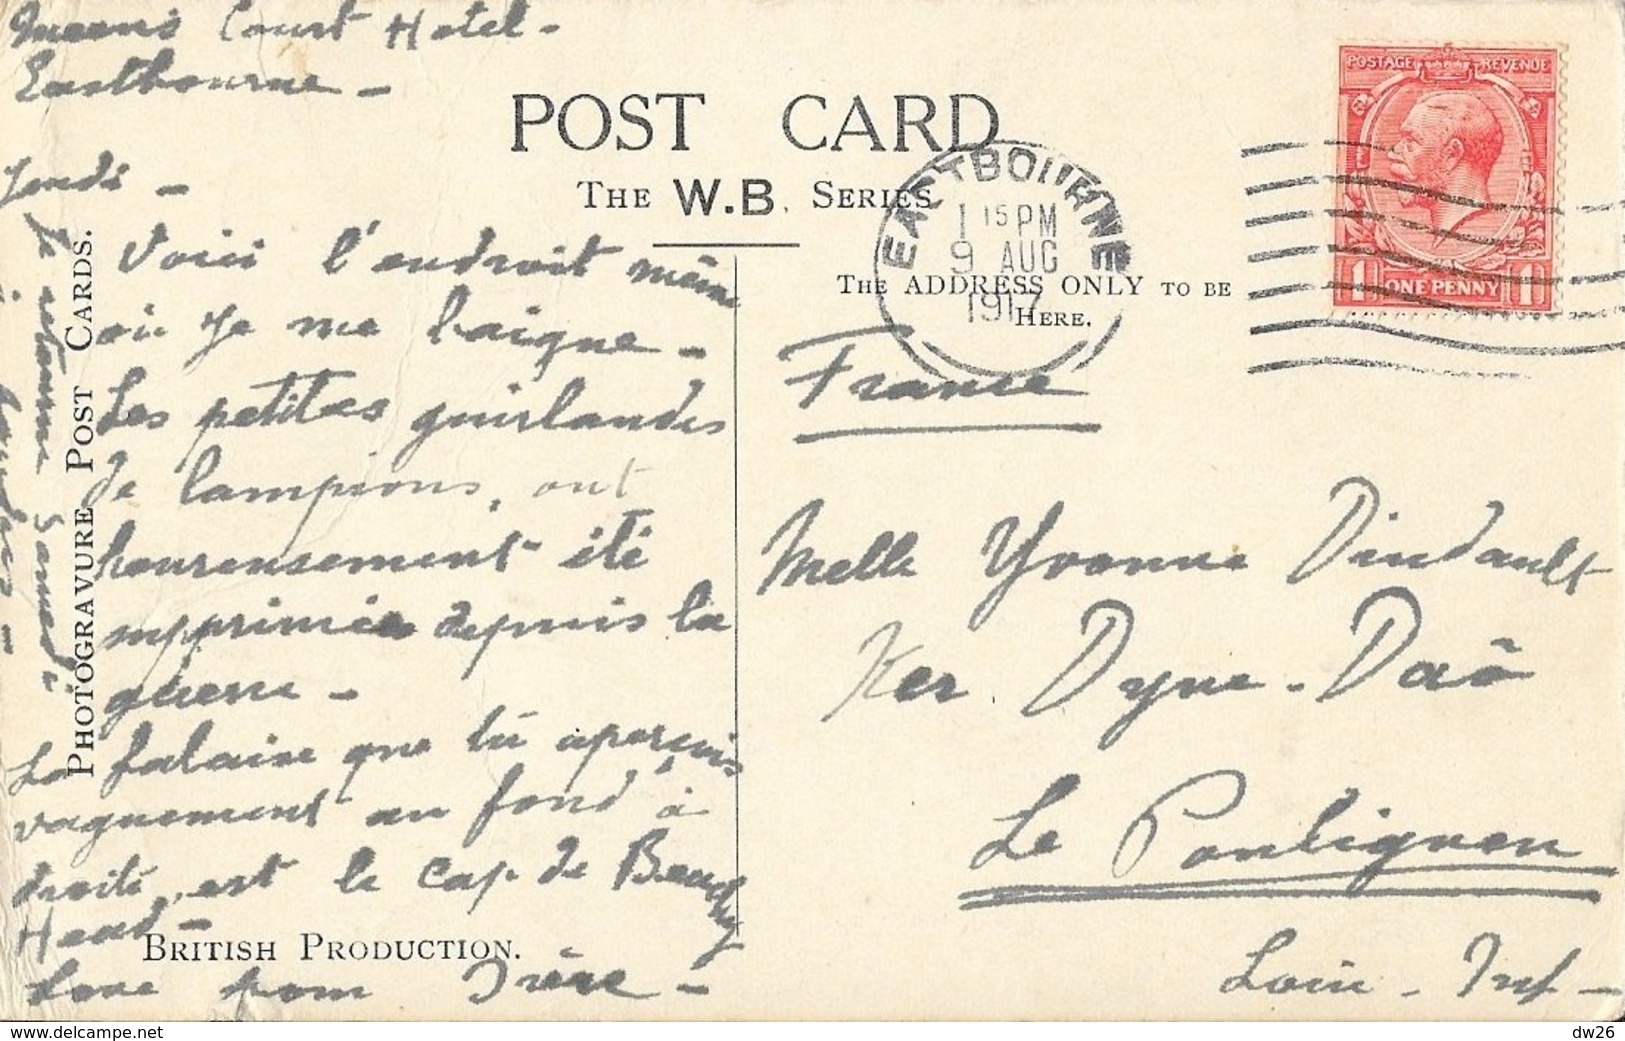 Queen's Court Hotel -
Eastbourne -
Jeudi -
Voici l'endroit même
où je me baigne -
Les petites guirlandes
de lampions, ont
heureusement été
supprimées depuis la
guerre -
La falaise que tu aperçois
vaguement au fond à
droite, est le cap de Beachy
Head -
Love from Irène -
Je retourne Samedi
à Londres -
PHOTOGRAVURE POST CARDS.
BRITISH PRODUCTION.
POST CARD
THE W.B. SERIES
THE ADDRESS ONLY TO BE
HERE.
EASTBOURNE
1 15 PM
9 AUG
1917
POSTAGE REVENUE
1 ONE PENNY 1
France
Melle Yvonne Dindault
Ker. Dyne. Daô
Le Pouliguen
Loire - Inf -
dw26
www.delcampe.net